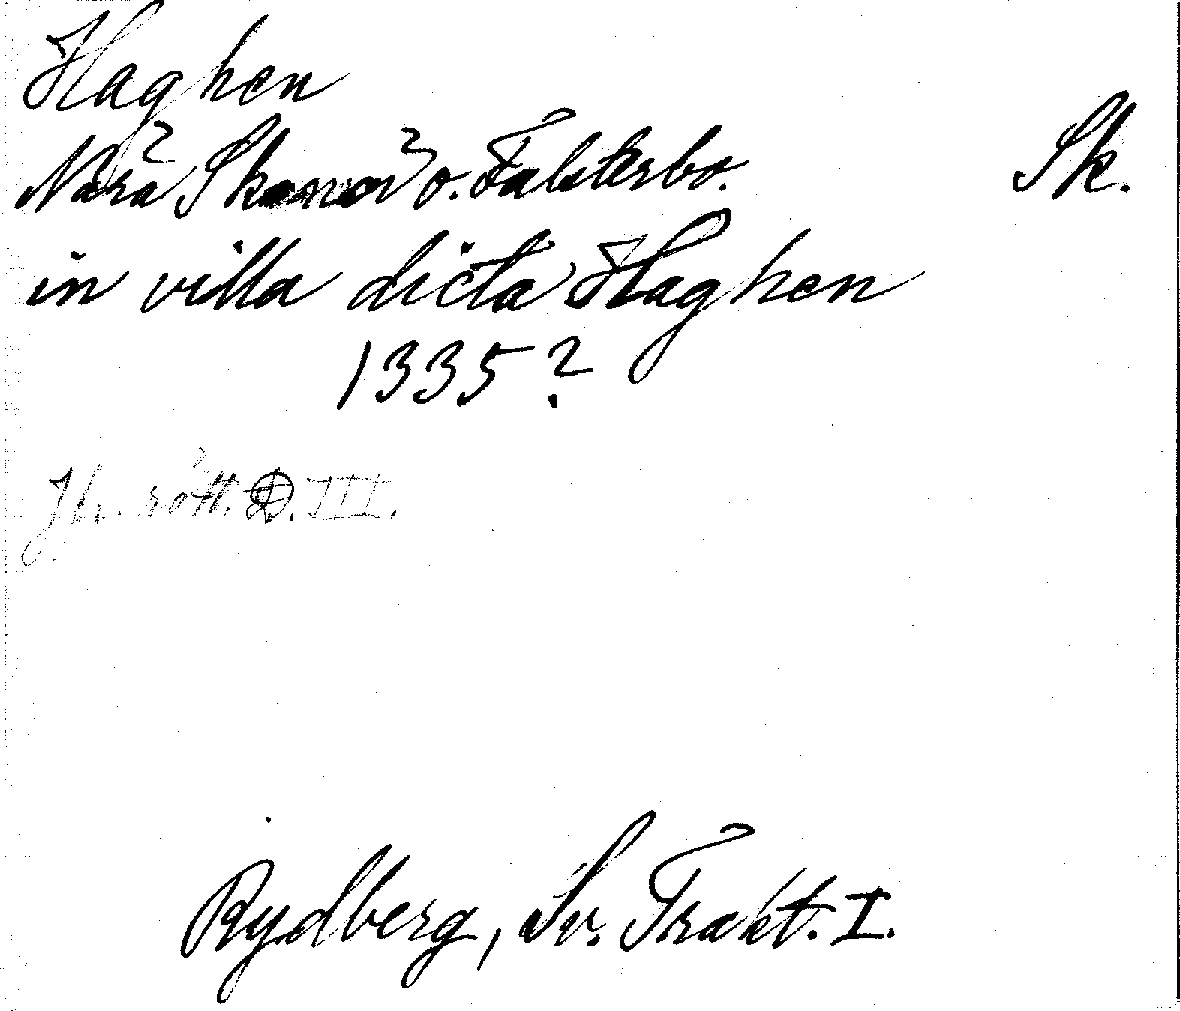 Haghen
Nära Skanör o. Falsterbo. Sk.
in villa dicta Haghen
1335?
Jbr. rätt. D. III.
Rydberg, Sv. Trakt. I.